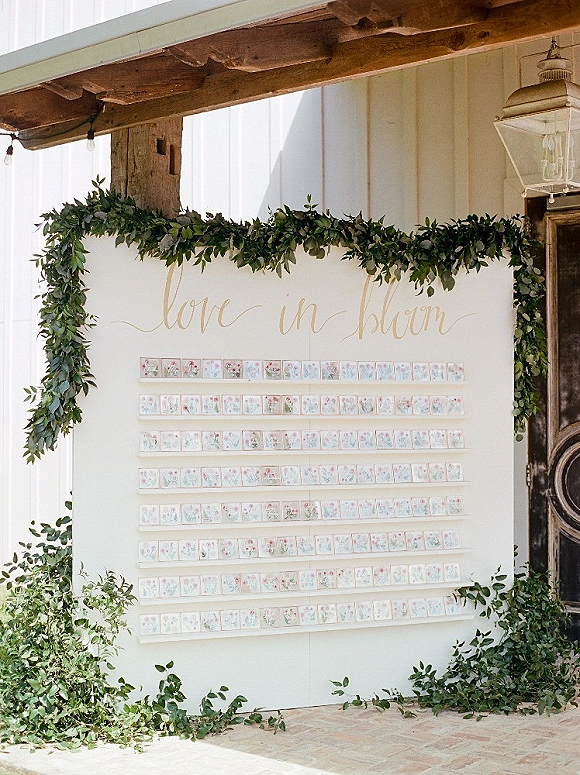 love in bloom